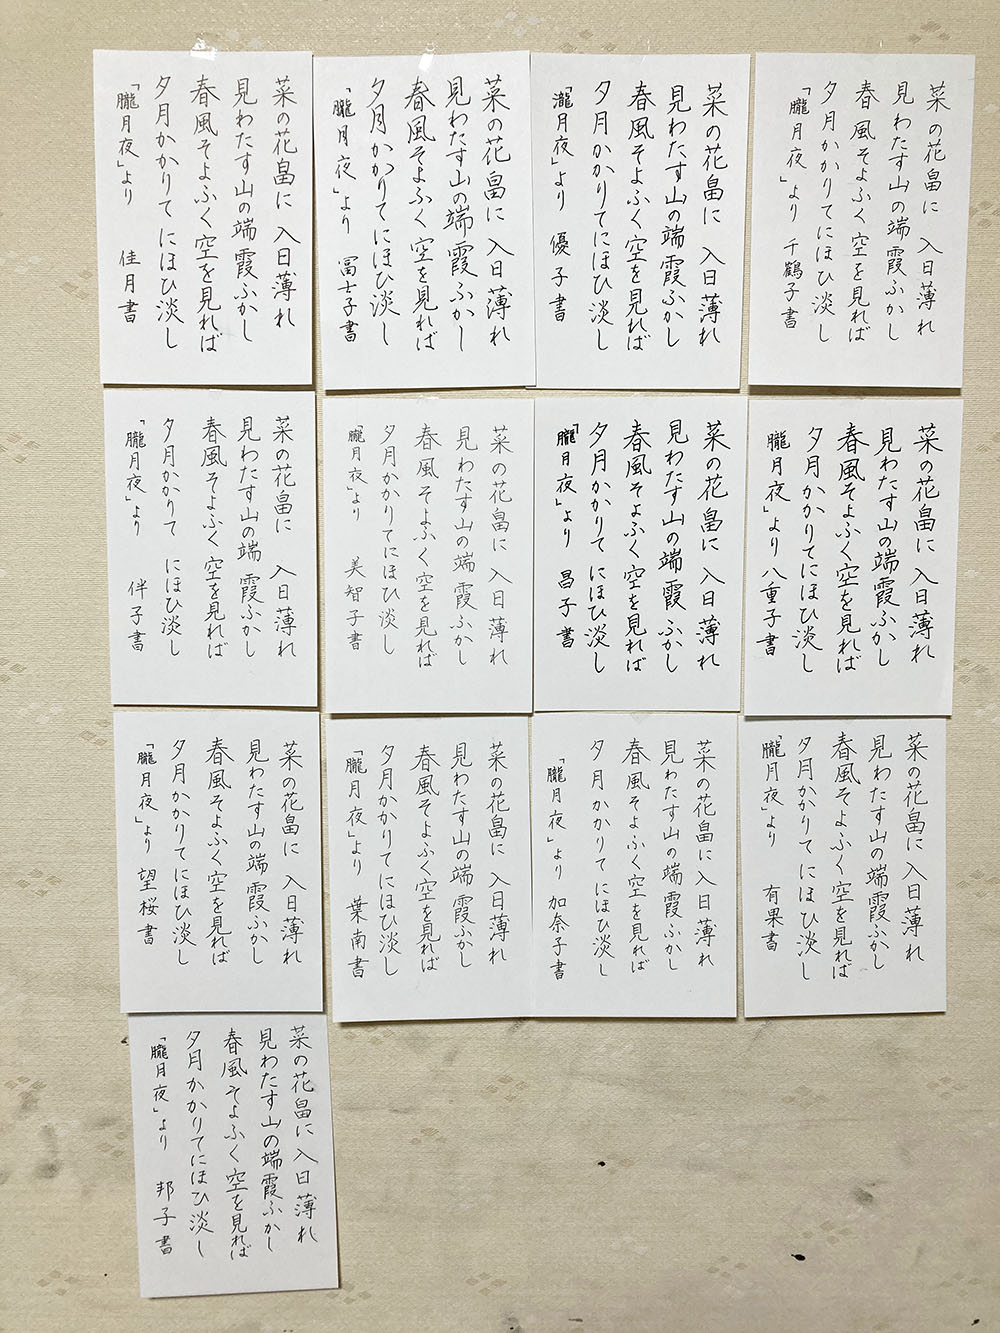 菜の花畠に 入日薄れ
見わたす山の端霞ふかし
春風そよふく空を見れば
夕月かかりてにほひ淡し
「朧月夜」より 千鶴子書
菜の花畠に 入日薄れ
見わたす山の端霞ふかし
春風そよふく空を見れば
夕月かかりてにほひ淡し
「瀧月夜」より 優子書
菜の花畠に 入日薄れ
見わたす山の端霞ふかし
春風そよふく空を見れば
夕月かかりてにほひ淡し
「朧月夜」より 冨士子書
菜の花畠に 入日薄れ
見わたす山の端霞ふかし
春風そよふく空を見れば
夕月かかりてにほひ淡し
「朧月夜」より 佳月書
菜の花畠に 入日薄れ
見わたす山の端霞ふかし
春風そよふく空を見れば
夕月かかりてにほひ淡し
朧月夜」より 八重子書
菜の花畠に 入日薄れ
見わたす山の端霞ふかし
春風そよふく空を見れば
夕月かかりて にほひ淡し
「朧月夜」より 昌子書
菜の花畠に 入日薄れ
見わたす山の端霞ふかし
春風そよふく空を見れば
夕月かかりてにほひ淡し
「朧月夜」より 美智子書
菜の花畠に 入日薄れ
見わたす山の端霞ふかし
春風そよふく空を見れば
夕月かかりて にほひ淡し
「朧月夜」より 伴子書
菜の花畠に 入日薄れ
見わたす山の端霞ふかし
春風そよふく空を見れば
夕月かかりてにほひ淡し
「朧月夜」より 有果書
菜の花畠に 入日薄れ
見わたす山の端霞ふかし
春風そよふく空を見れば
夕月かかりてにほひ淡し
「朧月夜」より 加奈子書
菜の花畠に 入日薄れ
見わたす山の端霞ふかし
春風そよふく空を見れば
夕月かかりてにほひ淡し
「朧月夜」より 葉南書
菜の花畠に 入日薄れ
見わたす山の端霞ふかし
春風そよふく空を見れば
夕月かかりてにほひ淡し
「朧月夜」より 望桜書
菜の花畠に 入日薄れ
見わたす山の端霞ふかし
春風そよふく空を見れば
夕月かかりてにほひ淡し
「朧月夜」より 邦子書